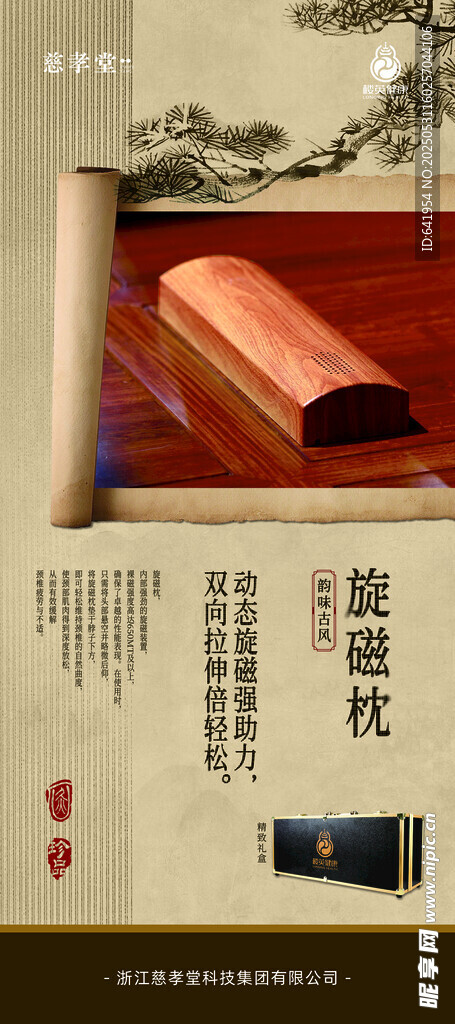 慈孝堂
楼英健康
ID:641954 NO:20250531160257044106
旋磁枕
韵味古风
动态旋磁强助力，
双向拉伸倍轻松。
旋磁枕，
内部强劲的旋磁装置，
裸磁强度高达650MT及以上，
确保了卓越的性能表现。在使用时，
只需将头部悬空并略微后仰，
将旋磁枕垫于脖子下方，
即可轻松维持颈椎的自然曲度，
使颈部肌肉得到深度放松，
从而有效缓解
颈椎疲劳与不适。
珍品
精致礼盒
楼英健康
- 浙江慈孝堂科技集团有限公司 -
昵享网 www.nipic.cn